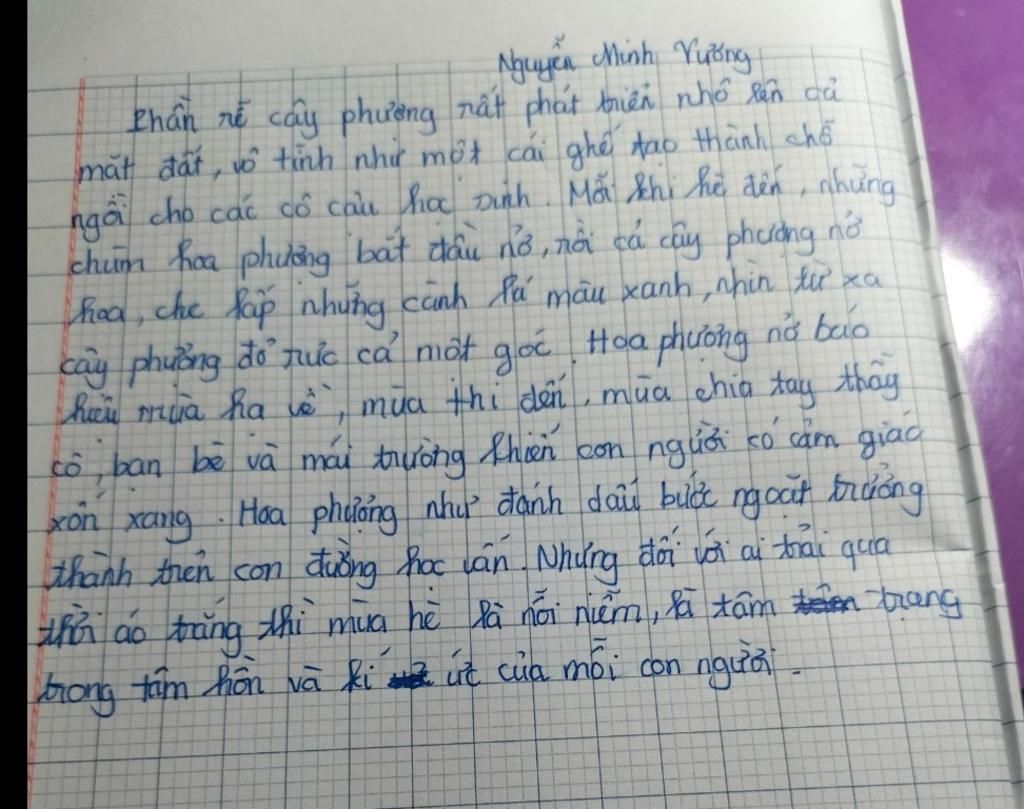 Nguyễn Minh Vương
Phần rễ cây phượng rất phát triển nhô lên cả
mặt đất, vô tình như một cái ghế tạo thành chỗ
ngồi cho các cô cậu học sinh. Mỗi khi hè đến, những
chùm hoa phượng bắt đầu nở, rồi cả cây phượng nở
hoa, che lấp những cành lá màu xanh, nhìn từ xa
cây phượng đỏ rực cả một góc. Hoa phượng nở báo
hiệu mùa hạ về, mùa thi đến, mùa chia tay thầy
cô, bạn bè và mái trường khiến con người có cảm giác
xốn xang. Hoa phượng như đánh dấu bước ngoặt trưởng
thành trên con đường học vấn. Nhưng đối với ai trải qua
thời áo trắng thì mùa hè là nỗi niềm, là tâm trạng
trong tâm hồn và kí ức của mỗi con người.